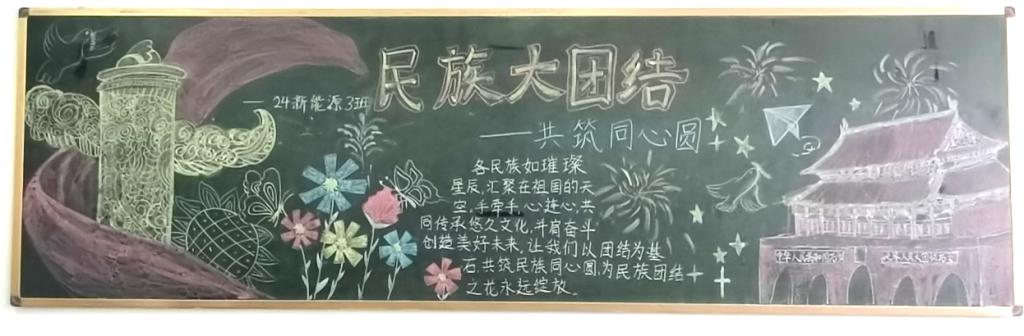 民族大团结
—24新能源3班
——共筑同心圆
各民族如璀璨
星辰,汇聚在祖国的天
空,手牵手,心连心,共
同传承悠久文化,并肩奋斗
创造美好未来,让我们以团结为基
石,共筑民族同心圆,为民族团结
之花永远绽放。
中华人民共和国万岁